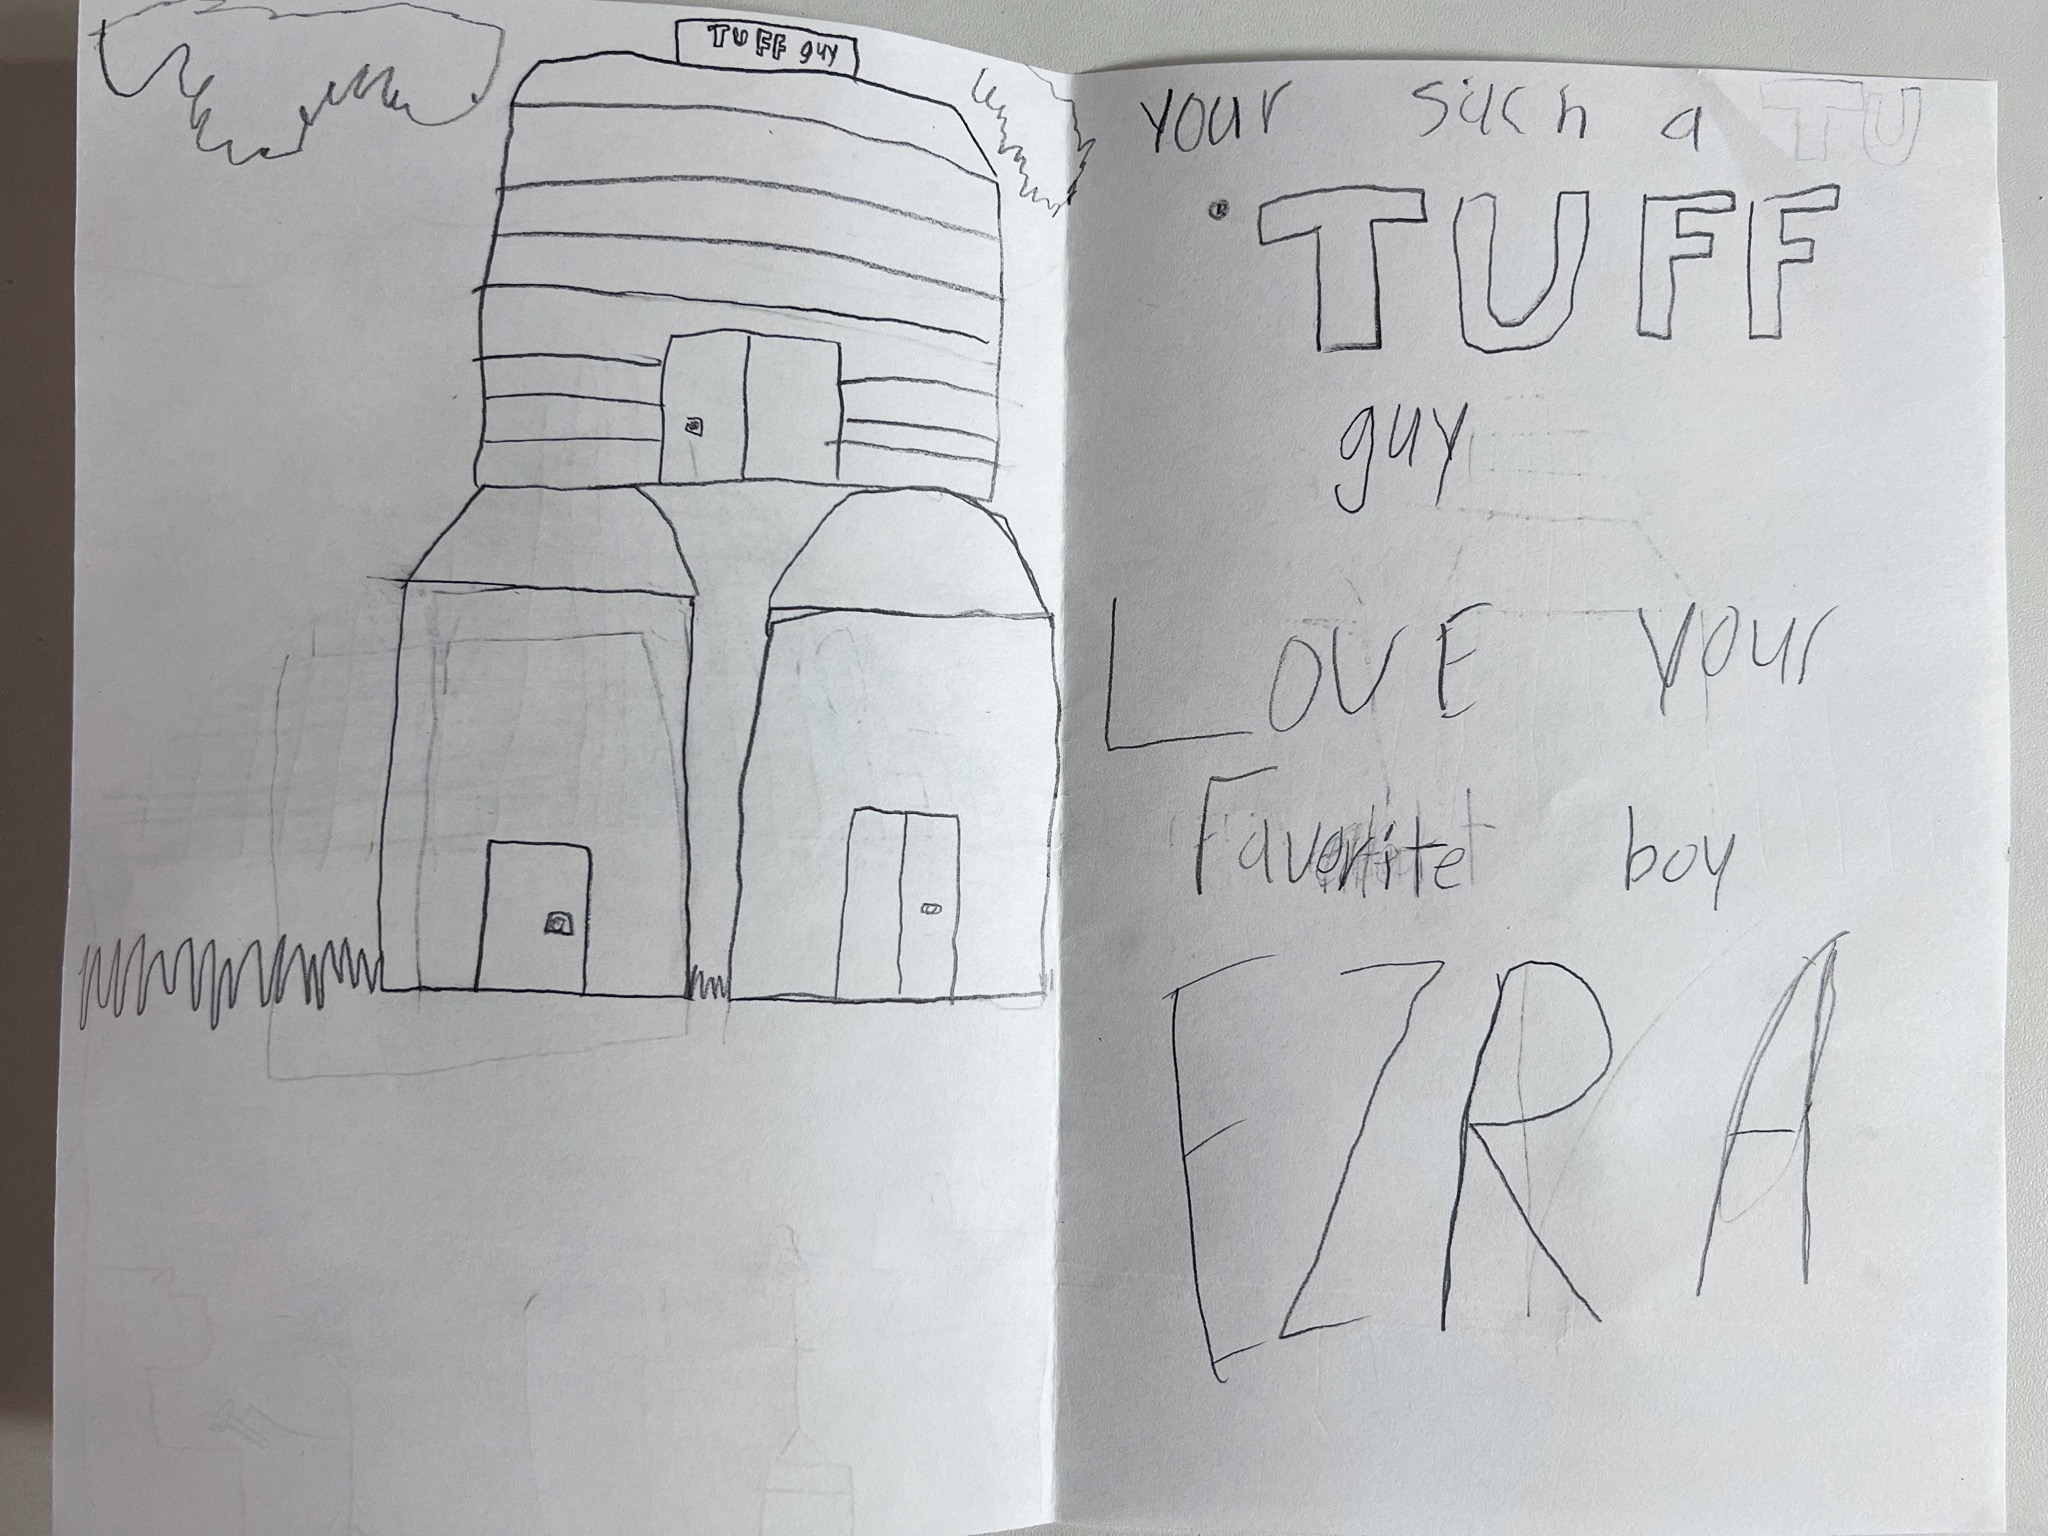 TUFF guy
your such a TU
TUFF
guy
LOVE your
Favorite boy
EZRA